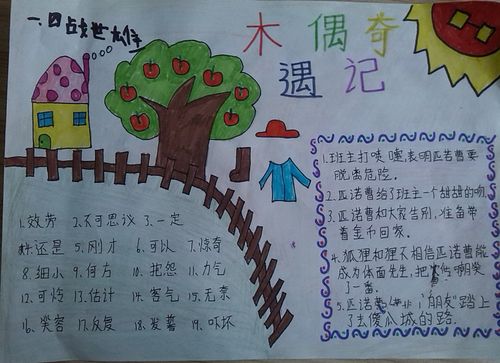 木偶奇
遇记
1.效劳 2.不可思议 3.一定
还是 5.刚才 6.可以 7.惊奇
8.细小 9.何方 10.抱怨 11.力气
12.可怜 13.估计 14.客气 15.无奈
16.笑容 17.反复 18.发誓 19.吓坏
1.班主打喷嚏,表明匹诺曹要
脱离危险。
2.匹诺曹给了班主一个甜甜的吻。
3.匹诺曹和大家告别,准备带
着金币回家。
4.狐狸和狸不相信匹诺曹能
成为体面先生,把他嘲笑
了一番。
5.匹诺曹 "朋友"踏上
了去傻瓜城的路。